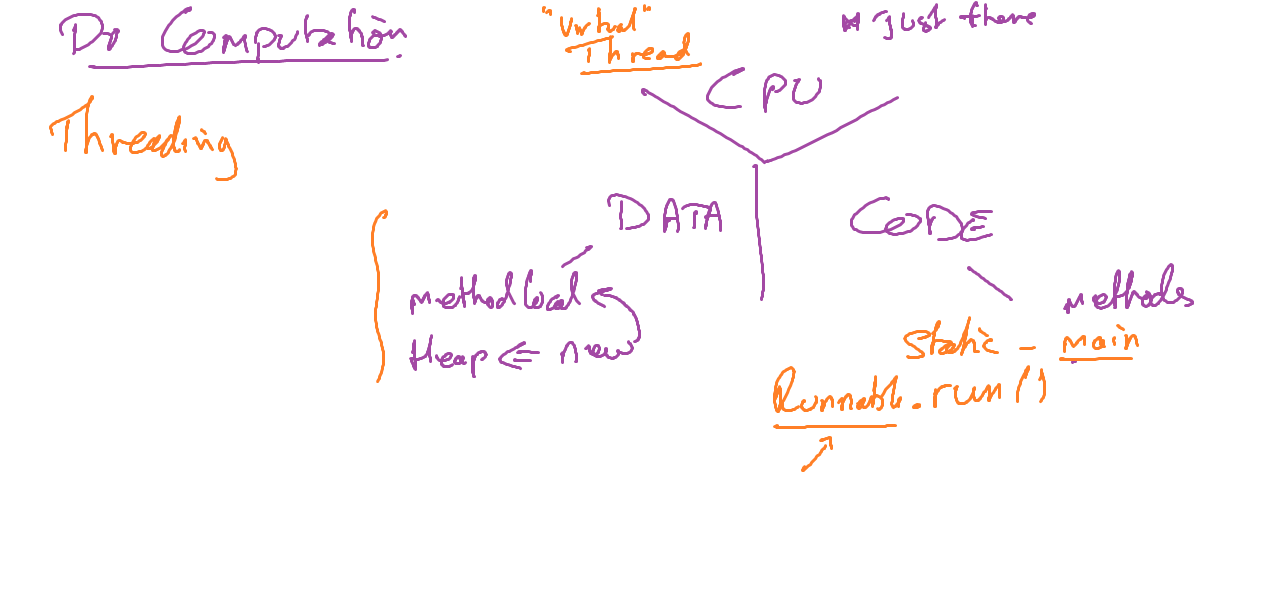 Do Computation.
"Virtual"
Thread
* Just there
CPU
Threading
DATA
CODE
method local
Heap <= new
methods
static - main
Runnable.run()